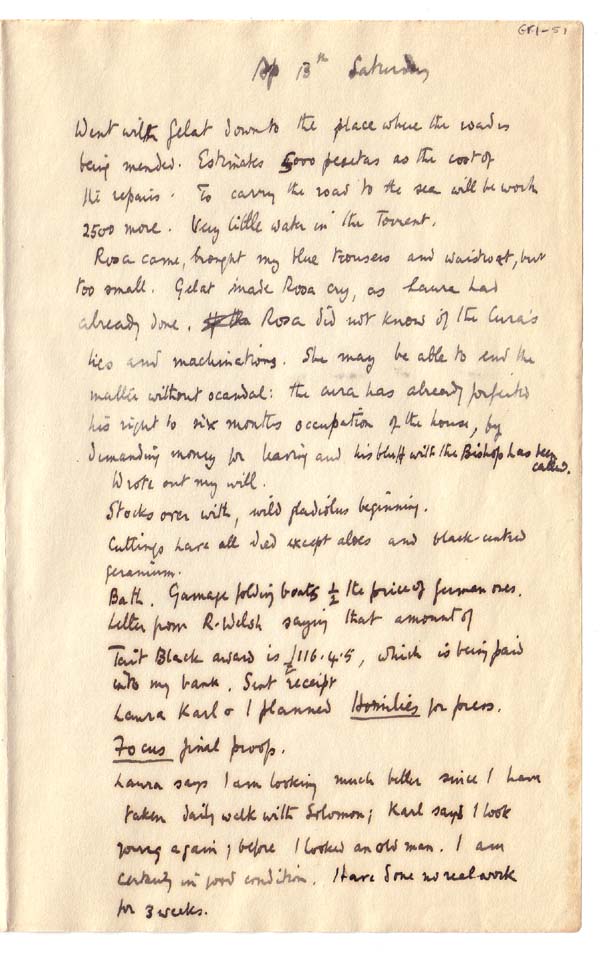 GRI-51
Ap 13th Saturday
Went with Gelat down to the place where the road is
being mended. Estimates 5000 pesetas as the cost of
the repairs. To carry the road to the sea will be worth
2500 more. Very little water in the Torrent.
Rosa came, brought my blue trousers and waistcoat, but
too small. Gelat made Rosa cry, as Laura had
already done. Rosa did not know of the Cura's
lies and machinations. She may be able to end the
matter without scandal: the cura has already forfeited
his right to six months occupation of the house, by
demanding money for leaving and his bluff with the Bishop has been
called.
Wrote out my will.
Stocks over with, wild gladiolus beginning.
Cuttings have all died except aloes and black-centred
geranium.
Bath. Gamage folding boats ½ the price of german ones.
Letter from R. Welsh saying that amount of
Tait Black award is £116.4.5, which is being paid
into my bank. Sent receipt
Laura Karl & I planned Homilies for press.
Focus final proofs.
Laura says I am looking much better since I have
taken daily walk with Solomon; Karl says I look
young again; before I looked an old man. I am
certainly in good condition. Have done no real work
for 3 weeks.